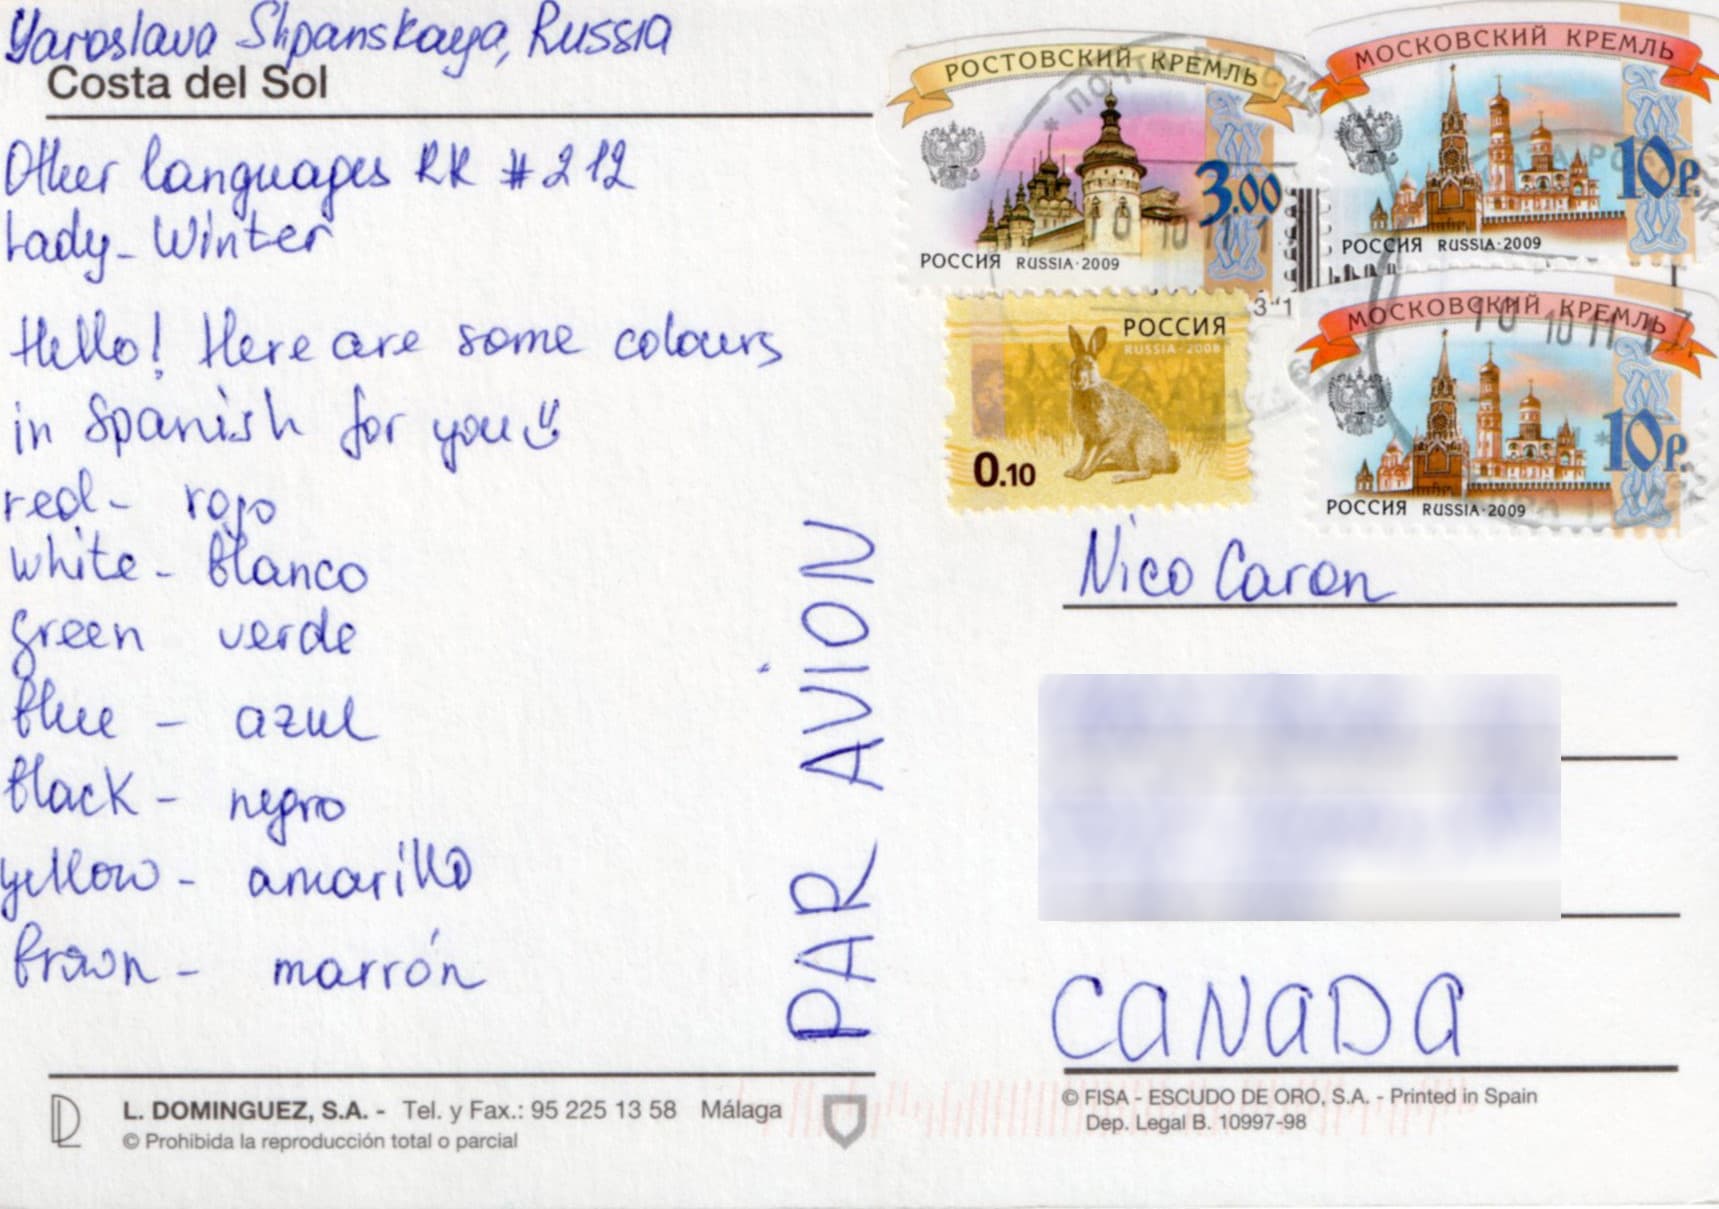 Yaroslava Shpanskaya, Russia
Costa del Sol
Other languages RR #212
Lady-Winter
Hello! Here are some colours
in Spanish for you
red - rojo
white - blanco
green verde
blue - azul
black - negro
yellow - amarillo
brown - marrón
PAR AVION
L. DOMINGUEZ, S.A. - Tel. y Fax.: 95 225 13 58 Málaga
© Prohibida la reproducción total o parcial
РОСТОВСКИЙ КРЕМЛЬ
3.00
РОССИЯ RUSSIA·2009
МОСКОВСКИЙ КРЕМЛЬ
10р.
РОССИЯ RUSSIA·2009
РОССИЯ
RUSSIA·2008
0.10
МОСКОВСКИЙ КРЕМЛЬ
10р.
РОССИЯ RUSSIA·2009
Nico Caron
CANADA
© FISA - ESCUDO DE ORO, S.A. - Printed in Spain
Dep. Legal B. 10997-98